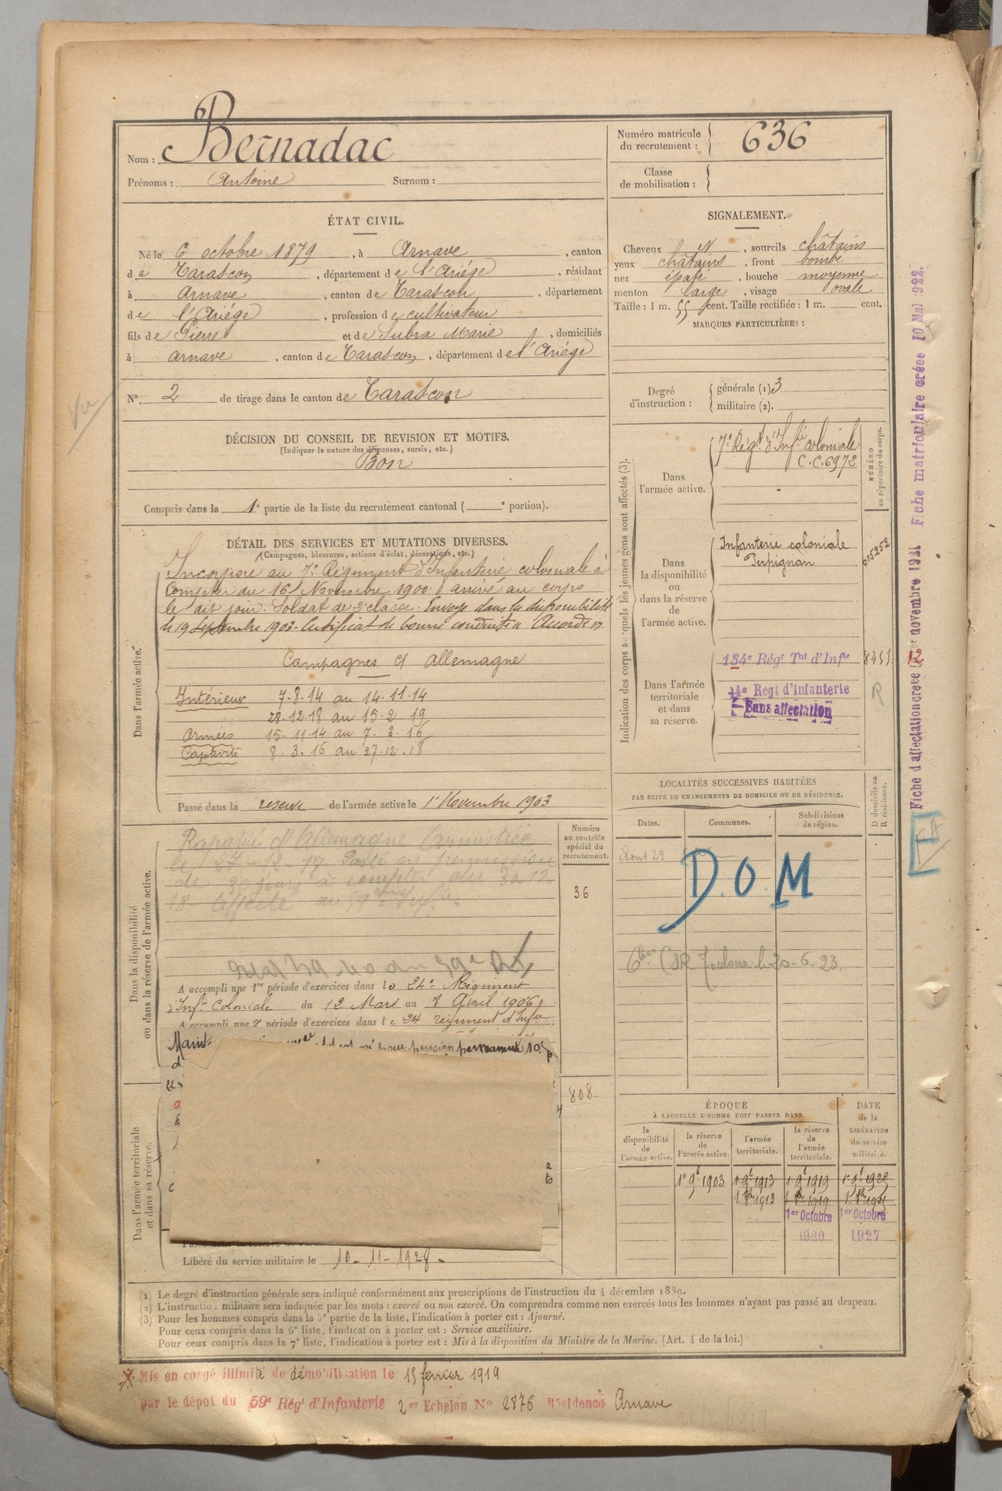 Nom : Bernadac
Prénoms : Antoine Surnom :
Numéro matricule du recrutement : 636
Classe de mobilisation :
ÉTAT CIVIL.
Né le 6 octobre 1879, à Arnave, canton
de Tarascon, département de l'Ariége, résidant
à Arnave, canton de Tarascon, département
de l'Ariége, profession de cultivateur
fils de Pierre et de Subra Marie, domiciliés
à Arnave, canton de Tarascon, département de l'Ariége
N° 2 de tirage dans le canton de Tarascon
SIGNALEMENT.
Cheveux , sourcils châtains
yeux châtains, front bombé
nez épaté, bouche moyenne
menton large, visage ovale
Taille : 1 m. 55 cent. Taille rectifiée : 1 m. cent.
MARQUES PARTICULIÈRES :
Degré d'instruction : générale (1) 3
militaire (2).
Vu
DÉCISION DU CONSEIL DE REVISION ET MOTIFS.
(Indiquer la nature des dispenses, sursis, etc.)
Bon
Compris dans la 1e partie de la liste du recrutement cantonal ( e portion).
DÉTAIL DES SERVICES ET MUTATIONS DIVERSES.
(Campagnes, blessures, actions d'éclat, décorations, etc.)
Dans l'armée active.
Incorporé au 7e Régiment d'Infanterie coloniale à
compter du 16 Novembre 1900 arrivé au corps
le dit jour. Soldat de 2e classe. Envoyé dans la disponibilité
le 19 Septembre 1903. Certificat de bonne conduite Accordé
Campagnes ct Allemagne
Intérieur 7-8-14 au 14-11-14
28-12-18 au 15-2-19
Armées 15-11-14 au 7-3-16
Captivité 8-3-16 au 27-12-18
Passé dans la réserve de l'armée active le 1er Novembre 1903
Dans la disponibilité ou dans la réserve de l'armée active.
Rapatrié d'Allemagne
Passé en permission
de 30 jours à compter du 30-12
18. Affecté au 59e
A accompli une 1re période d'exercices dans le 24e Régiment
d'Infie Coloniale du 12 Mars au 7 Avril 1906
A accompli une 2e période d'exercices dans le 24 régiment d'Infie
pension permanente 10%
Numéro au contrôle spécial du recrutement.
36
808.
Dans l'armée territoriale et dans sa réserve.
Libéré du service militaire le 10-11-1928.
Indication des corps auxquels les jeunes gens sont affectés (3).
Dans l'armée active.
7e Régt d'Infie coloniale
C.C. 6972
NUMÉRO au répertoire du corps.
Dans la disponibilité ou dans la réserve de l'armée active.
Infanterie coloniale
Perpignan
015252
Dans l'armée territoriale et dans sa réserve.
134e Régt Tal d'Infie
8451
R
Regt d'Infanterie
Sans affectation
LOCALITÉS SUCCESSIVES HABITÉES
PAR SUITE DE CHANGEMENTS DE DOMICILE OU DE RÉSIDENCE.
Dates. Communes. Subdivisions de région. D domicile ou R résidence.
Aout 29
D.O.M
Toulouse le 20-6-23
ÉPOQUE
À LAQUELLE L'HOMME DOIT PASSER DANS
la disponibilité de l'armée active.
la réserve de l'armée active.
l'armée territoriale.
la réserve de l'armée territoriale.
DATE de la LIBÉRATION du service militaire.
1er 9e 1903
1er Octobre 1920
1er Octobre 1927
Fiche matriculaire créée 10 Mai 1922.
12
(1) Le degré d'instruction générale sera indiqué conformément aux prescriptions de l'instruction du 4 décembre 1889.
(2) L'instruction militaire sera indiquée par les mots : exercé ou non exercé. On comprendra comme non exercés tous les hommes n'ayant pas passé au drapeau.
(3) Pour les hommes compris dans la 5e partie de la liste, l'indication à porter est : Ajourné.
Pour ceux compris dans la 6e liste, l'indication à porter est : Service auxiliaire.
Pour ceux compris dans la 7e liste, l'indication à porter est : Mis à la disposition du Ministre de la Marine. (Art. 4 de la loi.)
Mis en congé illimité de démobilisation le 15 février 1919
par le dépôt du 59e Régt d'Infanterie 2me Echelon No 2876 Résidence Arnave